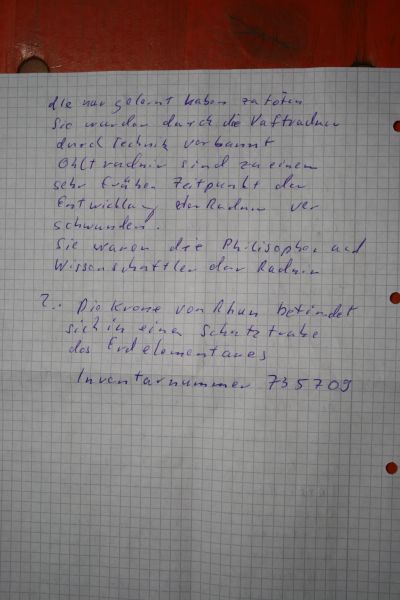 die nur gelernt haben zu töten
Sie wurden durch die Vaftradnin
durch Technik verbannt
Ohlt radnir sind zu einem
sehr frühen Zeitpunkt der
Entwicklung der Radnin ver
schwunden.
Sie waren die Philisopher und
Wissenschaftler der Radnin
2.. Die Krone von Rhun befindet
sich in einer Schatztruhe
des Erdelementares
Inventarnummer 735709